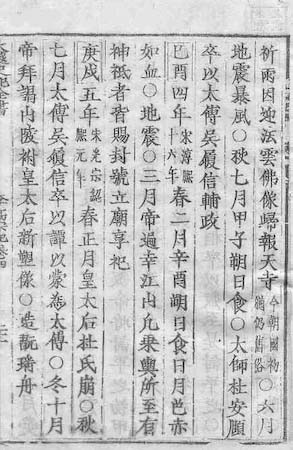 祈雨因迎法雲佛像歸報天寺今朝國初猶仍舊路○六月
地震暴風○秋七月甲子朔日食○太師杜安頤
卒以太傅吳履信輔政
己酉四年宋淳熙十六年春二月辛酉朔日食日月色赤
如血○地震○三月帝過幸江山凡乘輿所至有
神祇者皆賜封號立廟享祀
庚戌五年宋光宗紹熙元年春正月皇太后杜氏崩○秋
七月太傅吳履信卒以譚以蒙為太傅○冬十月
帝拜謁山陵祔皇太后新塑像○造觀璠舟